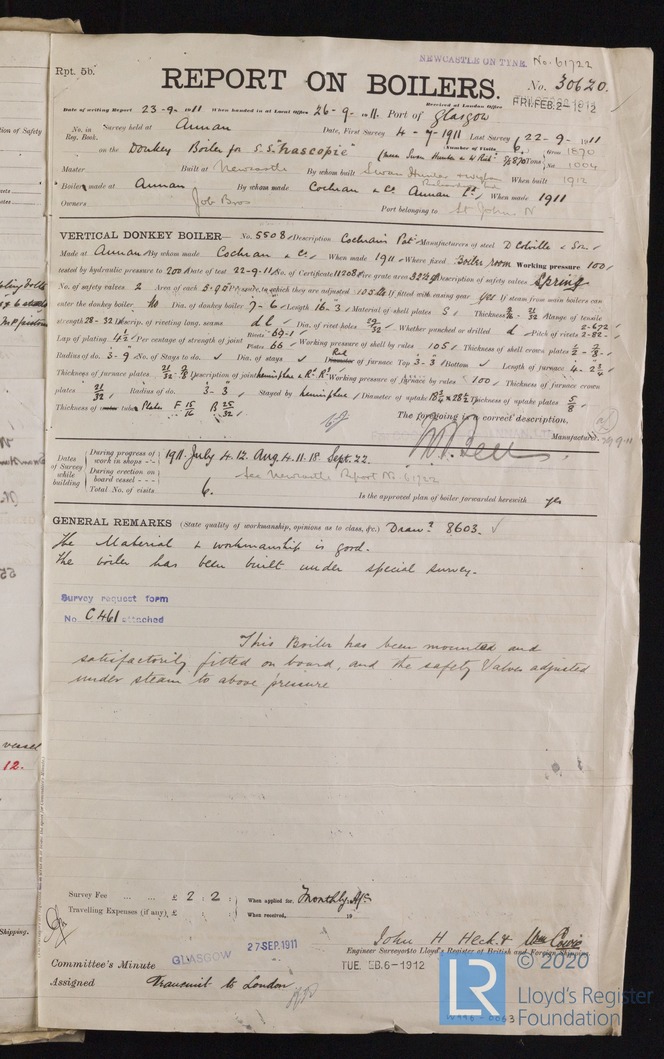 NEWCASTLE ON TYNE No. 61722
Rpt. 5b.
REPORT ON BOILERS.
No. 30620.
Received at London Office FRI. FEB. 2 - 1912
Date of writing Report 23-9-1911 When handed in at Local Office 26-9-1911. Port of Glasgow
No. in Reg. Book. Survey held at Annan Date, First Survey 4-7-1911 Last Survey 22-9-1911
Number of Visits 6.
on the Donkey Boiler for S.S. "Nascopie" Tons Gross 1870 Net 1004
Master Built at Newcastle By whom built Swan Hunter & Wigham Richardson Ltd When built 1912
Boiler made at Annan By whom made Cochran & Co. Annan Ld. When made 1911
Owners Job Bros Port belonging to St John's N
VERTICAL DONKEY BOILER No. 5508 Description Cochran's Pat. Manufacturers of steel D Colville & Sons
Made at Annan By whom made Cochran & Co. When made 1911 Where fixed Boiler room Working pressure 100
tested by hydraulic pressure to 200 Date of test 22-9-11 No. of Certificate 11208 Fire grate area 32½ Description of safety valves Spring
No. of safety valves 2 Area of each 5.90 Pressure to which they are adjusted 105 lb If fitted with easing gear yes If steam from main boilers can
enter the donkey boiler No Dia. of donkey boiler 7-6 Length 16-3 Material of shell plates S Thickness 21/32 Range of tensile
strength 28-32 Descrip. of riveting long. seams d l Dia. of rivet holes 29/32 Whether punched or drilled d Pitch of rivets 2.672 2.82
Lap of plating 4½ Per centage of strength of joint Rivets 69.1 Plates 66 Working pressure of shell by rules 105 Thickness of shell crown plates
Radius of do. 3-9 No. of Stays to do. Dia. of stays Rad of furnace Top 3-3 Bottom Length of furnace 4-2¾
Thickness of furnace plates 21/32 Description of joint Working pressure of furnace by rules 100 Thickness of furnace crown
plates 21/32 Radius of do. 3-3 Stayed by hemisphere Diameter of uptake Thickness of uptake plates 5/8
Thickness of water tubes Plates F 15/16 B 25/32
The foregoing is a correct description,
Manufacturer.
Dates of Survey while building During progress of work in shops 1911. July 4.12. Aug. 4.11.18. Sept. 22.
During erection on board vessel See Newcastle Report No. 61722
Total No. of visits 6. Is the approved plan of boiler forwarded herewith yes
GENERAL REMARKS (State quality of workmanship, opinions as to class, &c.) Drawg. 8603.
The Material & workmanship is good.
The boiler has been built under special survey.
Survey request form
No. C461 attached
This Boiler has been mounted and
satisfactorily fitted on board, and the safety Valves adjusted
under steam to above pressure
Survey Fee ... ... £ 2 : 2 : When applied for, Monthly A/c
Travelling Expenses (if any) £ : : When received, 19
John H Heck & Wm Cowie
Engineer Surveyor to Lloyd's Register of British and Foreign Shipping.
GLASGOW 27 SEP. 1911
Committee's Minute TUE. FEB. 6-1912
Assigned Transmit to London
LR © 2020
Lloyd's Register
Foundation
vessel
12.
Shipping.